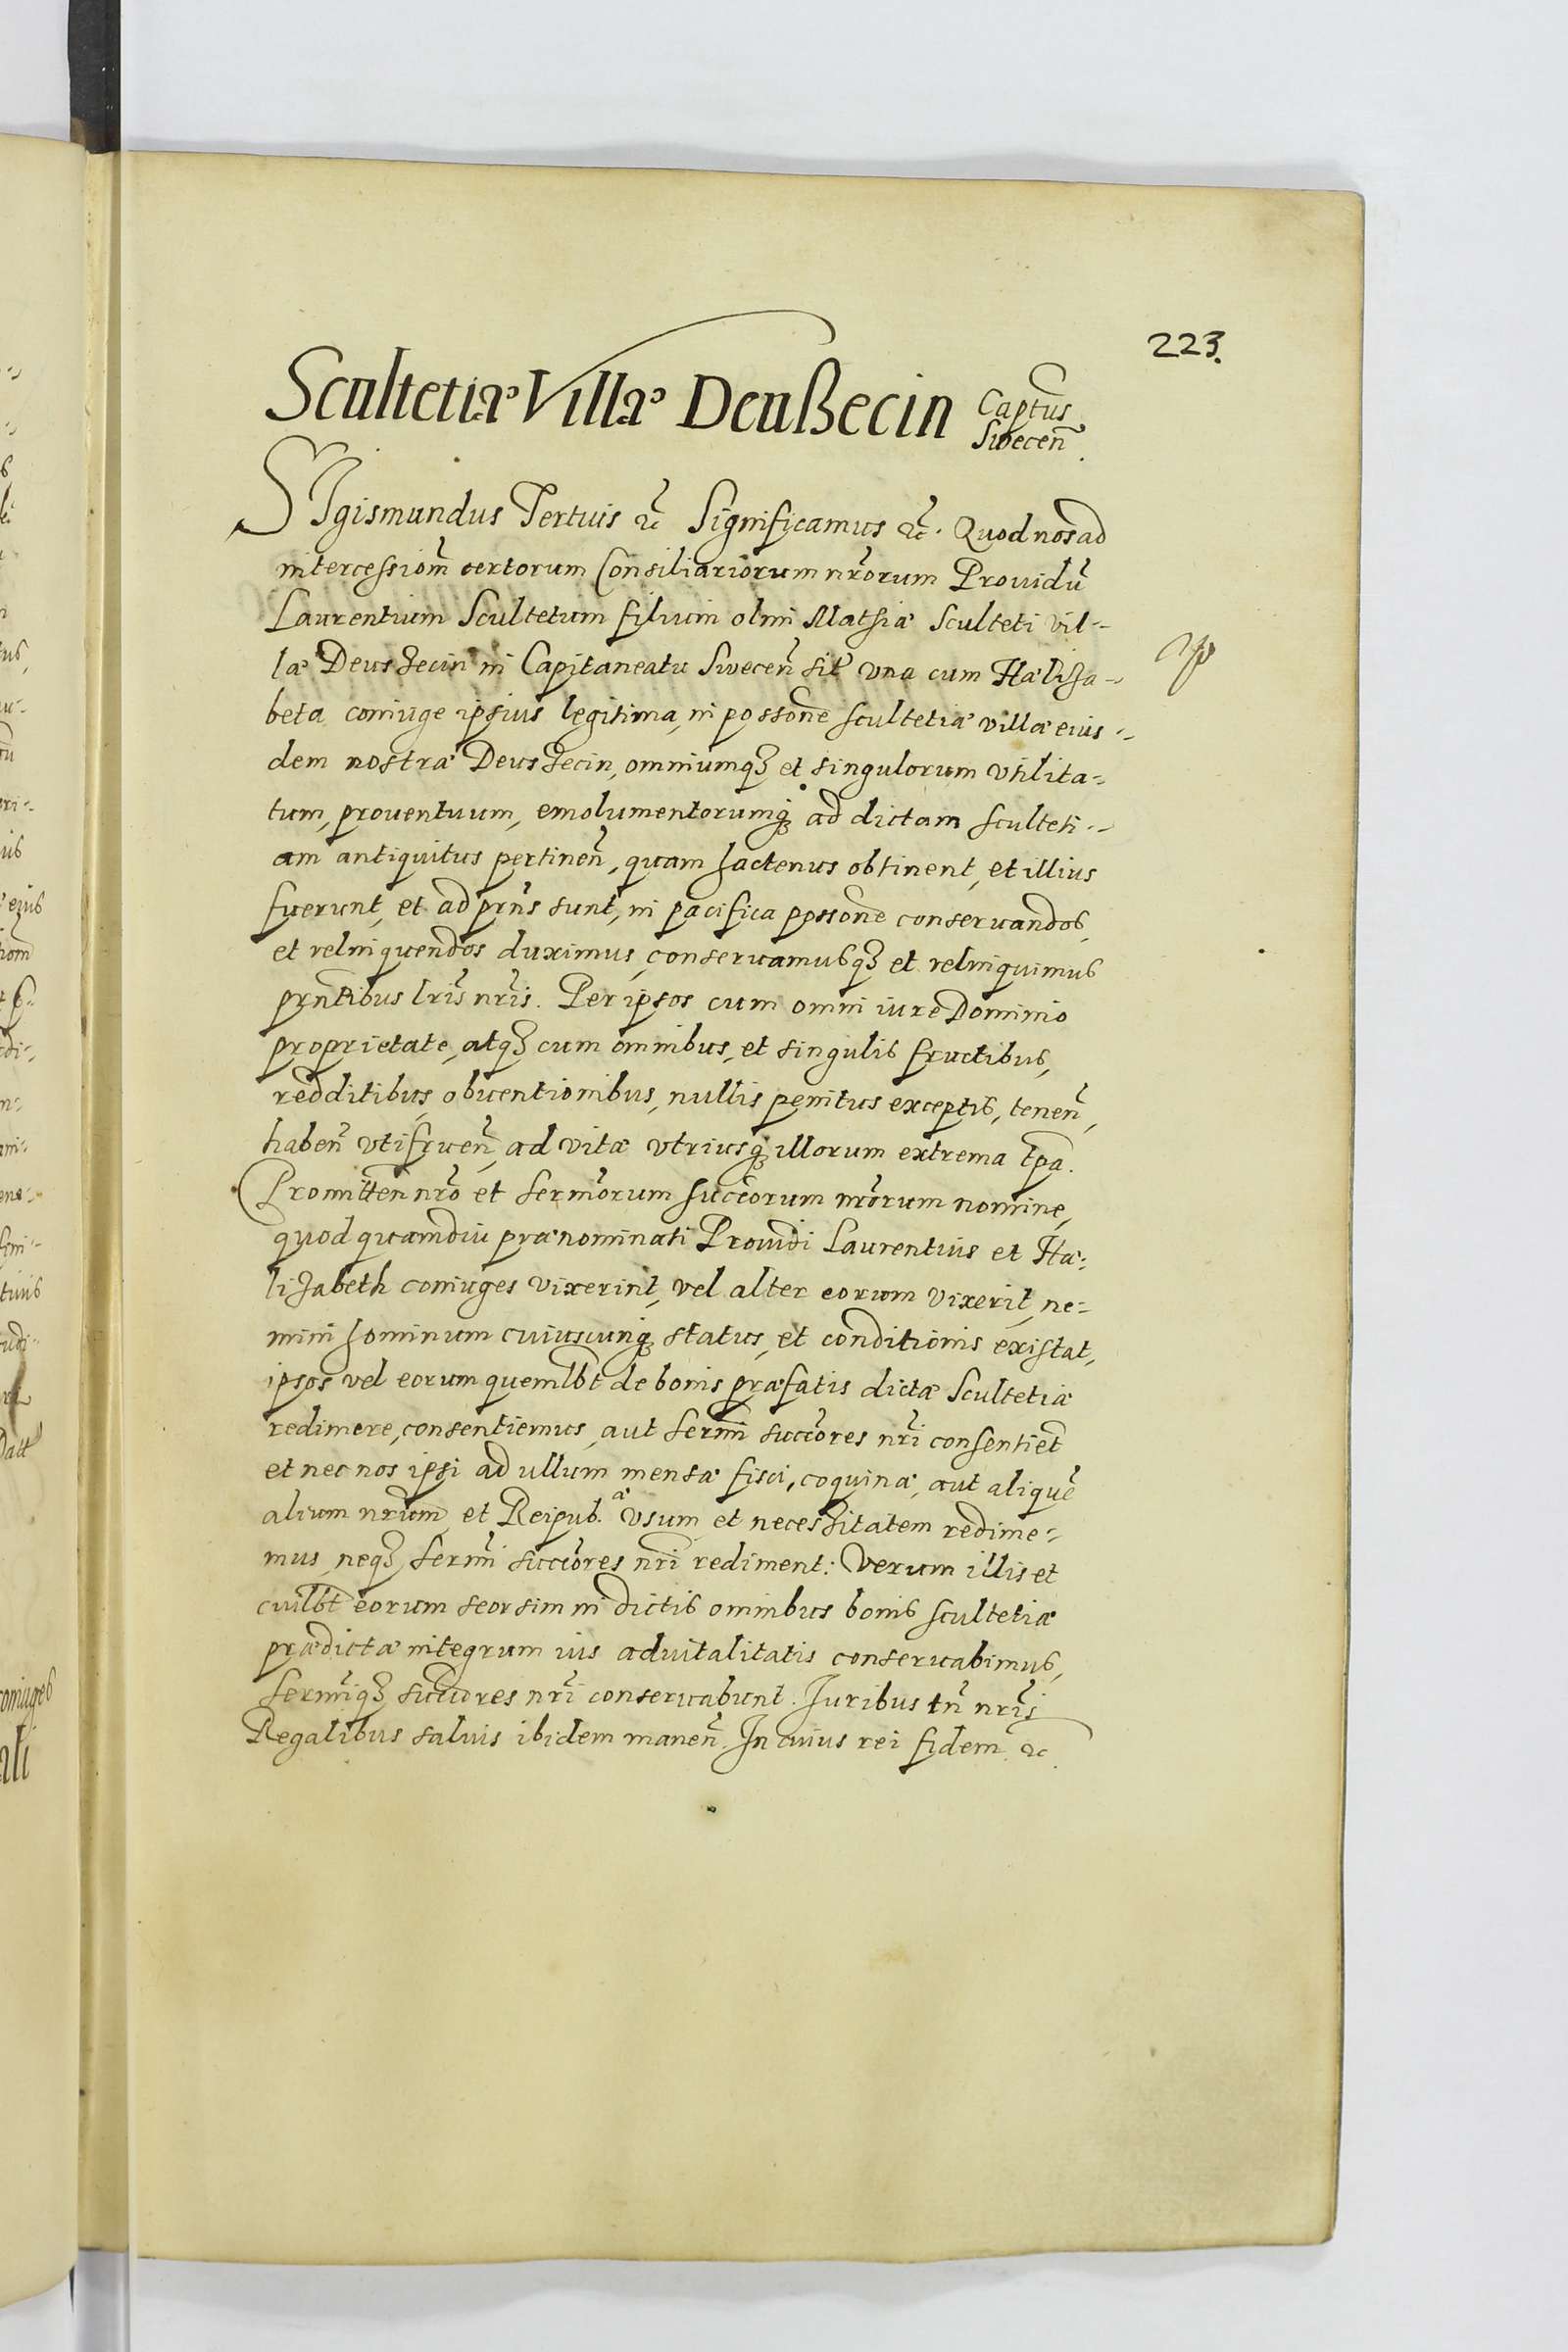 223.
Scultetiæ Villæ Deußecin Captus
Swecen̄.
SIgismundus Tertuis ꝛc Significamus ꝛc. Quod nos ad
intercessiom̄ certorum Consiliariorum nr̄orum Prouidū
Laurentium Scultetum filium olim Mathiæ Sculteti vil-
læ Deushecin in Capitaneatu Swecen̄ sit̄ vna cum Hælisa-
beta coniuge ipsius legitima, in possone scultetiæ villæ eius-
dem nostræ Deushecin, omniumqȝ et singulorum vtilita-
tum, prouentuum, emolumentorumqȝ ad dictam sculteti-
am antiquitus pertinen̄, quam hactenus obtinent, et illius
fuerunt, et ad prn̄s sunt, in pacifica possone conseruandos,
et relinquendos duximus, conseruamusqȝ et relinquimus
prn̄tibus lr̄is nr̄is. Per ipsos cum omni iure Dominio
proprietate, atqȝ cum omnibus, et singulis fructibus,
redditibus, obuentionibus, nullis penitus exceptis, tenen̄,
haben̄ vtifruen̄, ad vitæ vtriusqȝ illorum extrema tp̄a.
Promitten̄ nr̄o et Serm̄orum succ̄orum nr̄orum nomine,
quod quamdiu prænominati Prouidi Laurentius et Hæ-
lisabeth coniuges vixerint, vel alter eorum vixerit, ne-
mini hominum cuiuscunqȝ status, et conditionis existat,
ipsos vel eorum quemlb̄t de bonis præfatis dictæ Scultetiæ
redimere, consentiemus, aut Serm̄i succ̄ores nr̄i consentiet̄
et nec nos ipsi ad ullum mensæ fisci, coquinæ, aut aliquē
alium nr̄um et Reipub.æ vsum et necessitatem redime-
mus, neqȝ Serm̄i succ̄ores nr̄i rediment: Verum illis et
cuilb̄t eorum seorsim in dictis omnibus bonis scultetiæ
prædictæ integrum ius aduitalitatis conseruabimus,
Serm̄iqȝ succ̄ores nr̄i conseruabunt. Juribus tn̄ nr̄is
Regalibus saluis ibidem manen̄. In cuius rei fidem ꝛc.